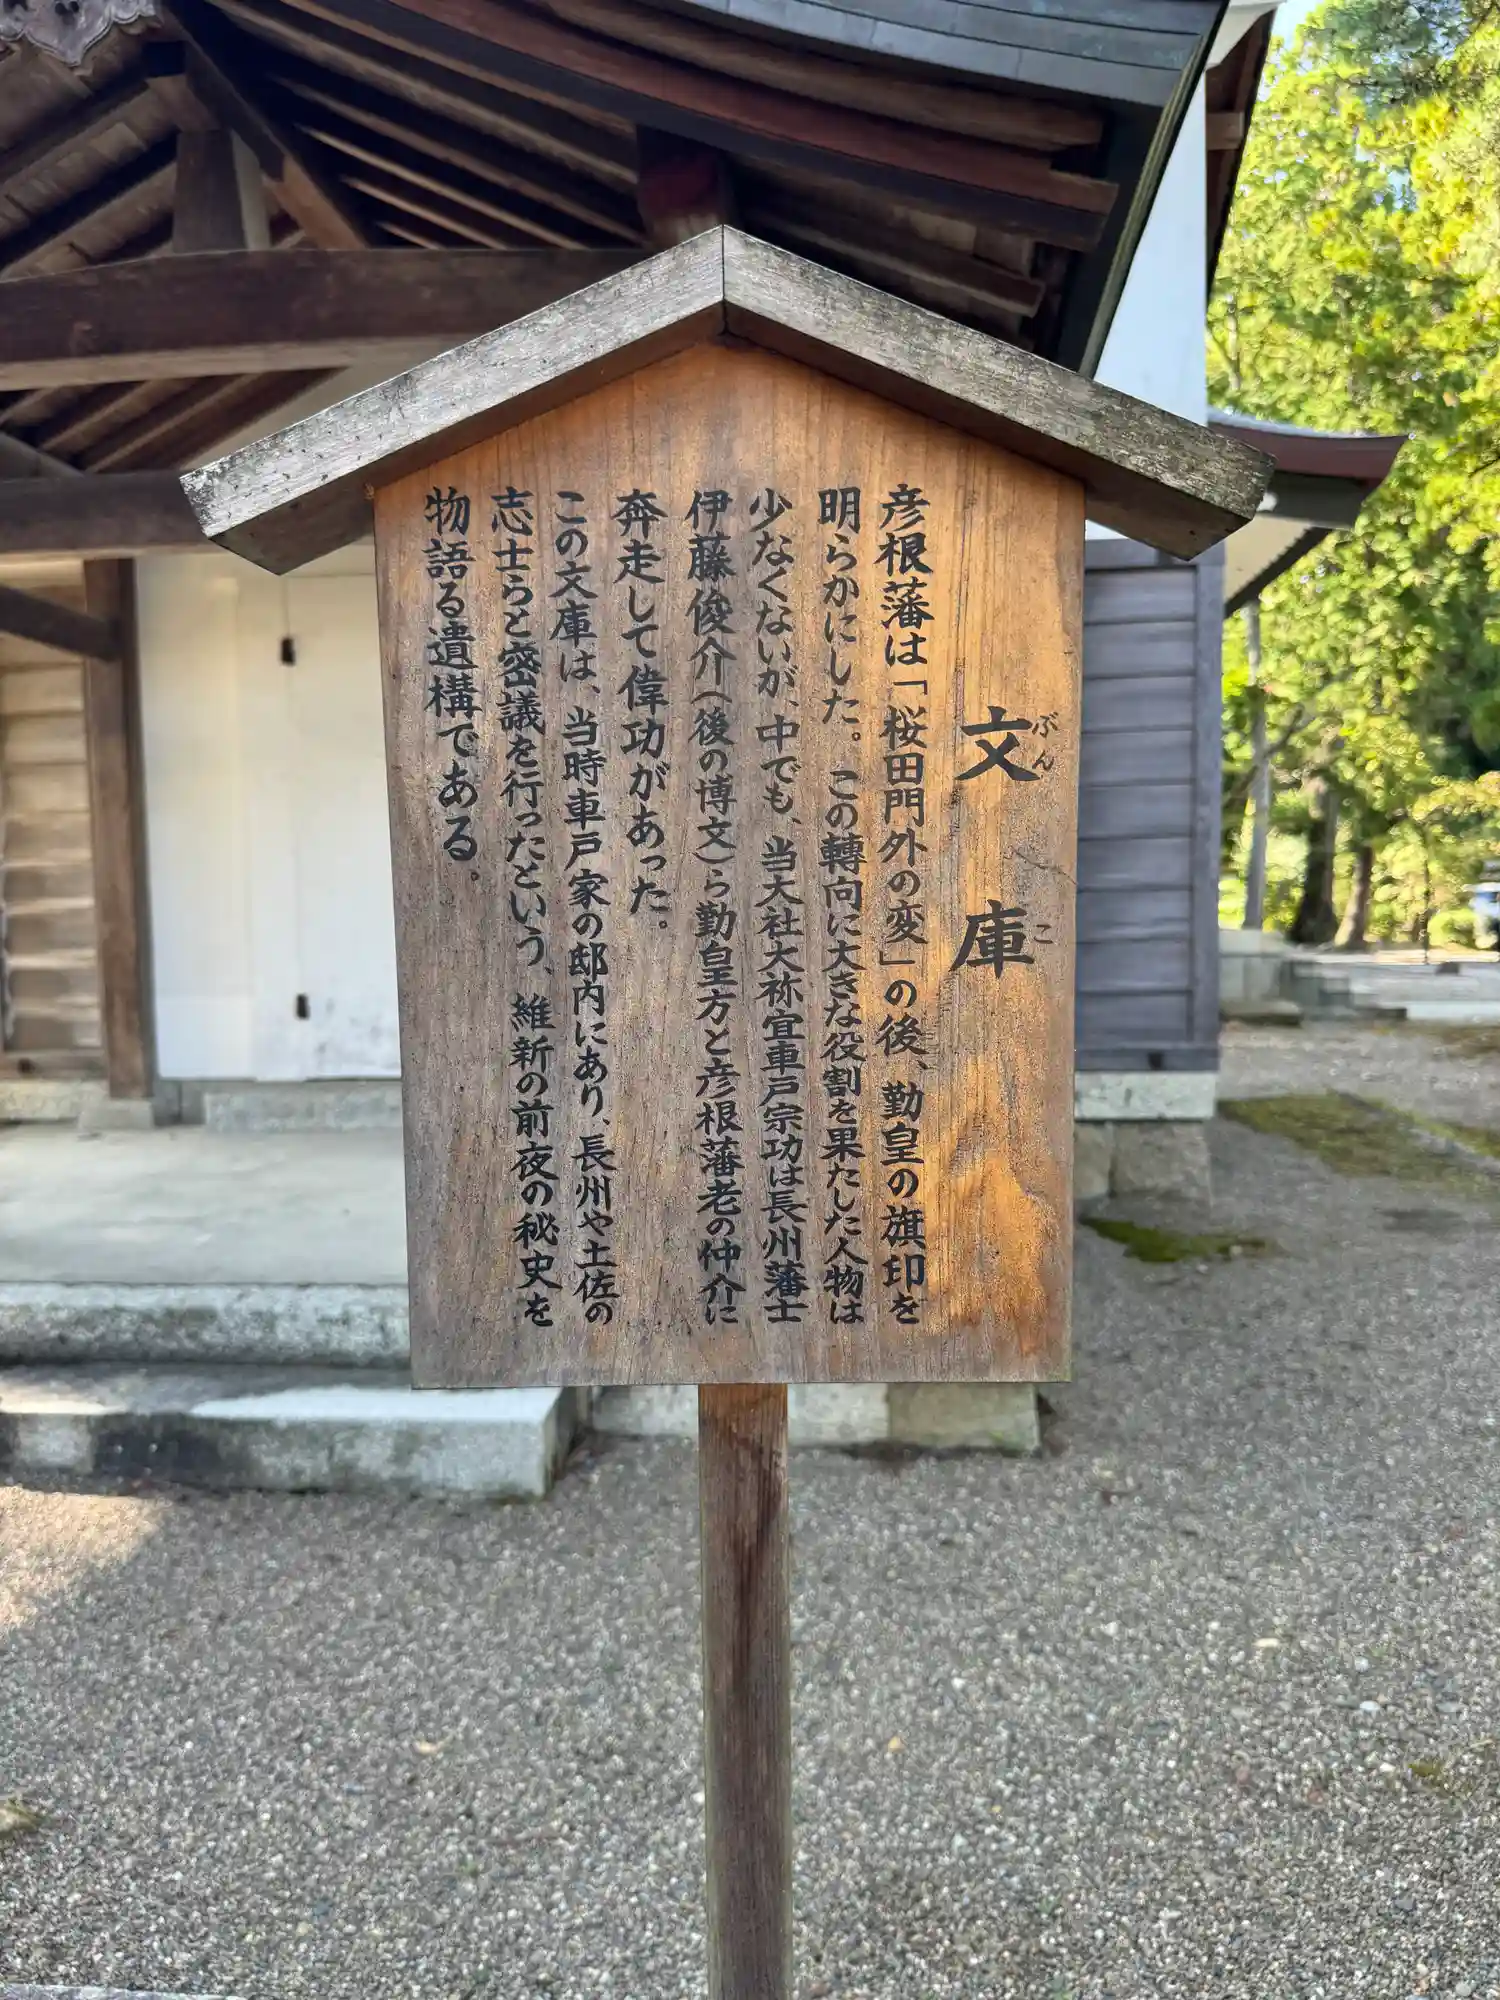 文庫
ぶんこ
彦根藩は「桜田門外の変」の後、勤皇の旗印を
明らかにした。この轉向に大きな役割を果たした人物は
少なくないが、中でも、当大社大祢宜車戸宗功は長州藩士
伊藤俊介(後の博文)ら勤皇方と彦根藩老の仲介に
奔走して偉功があった。
この文庫は、当時車戸家の邸内にあり、長州や土佐の
志士らと密議を行ったという、維新の前夜の秘史を
物語る遺構である。